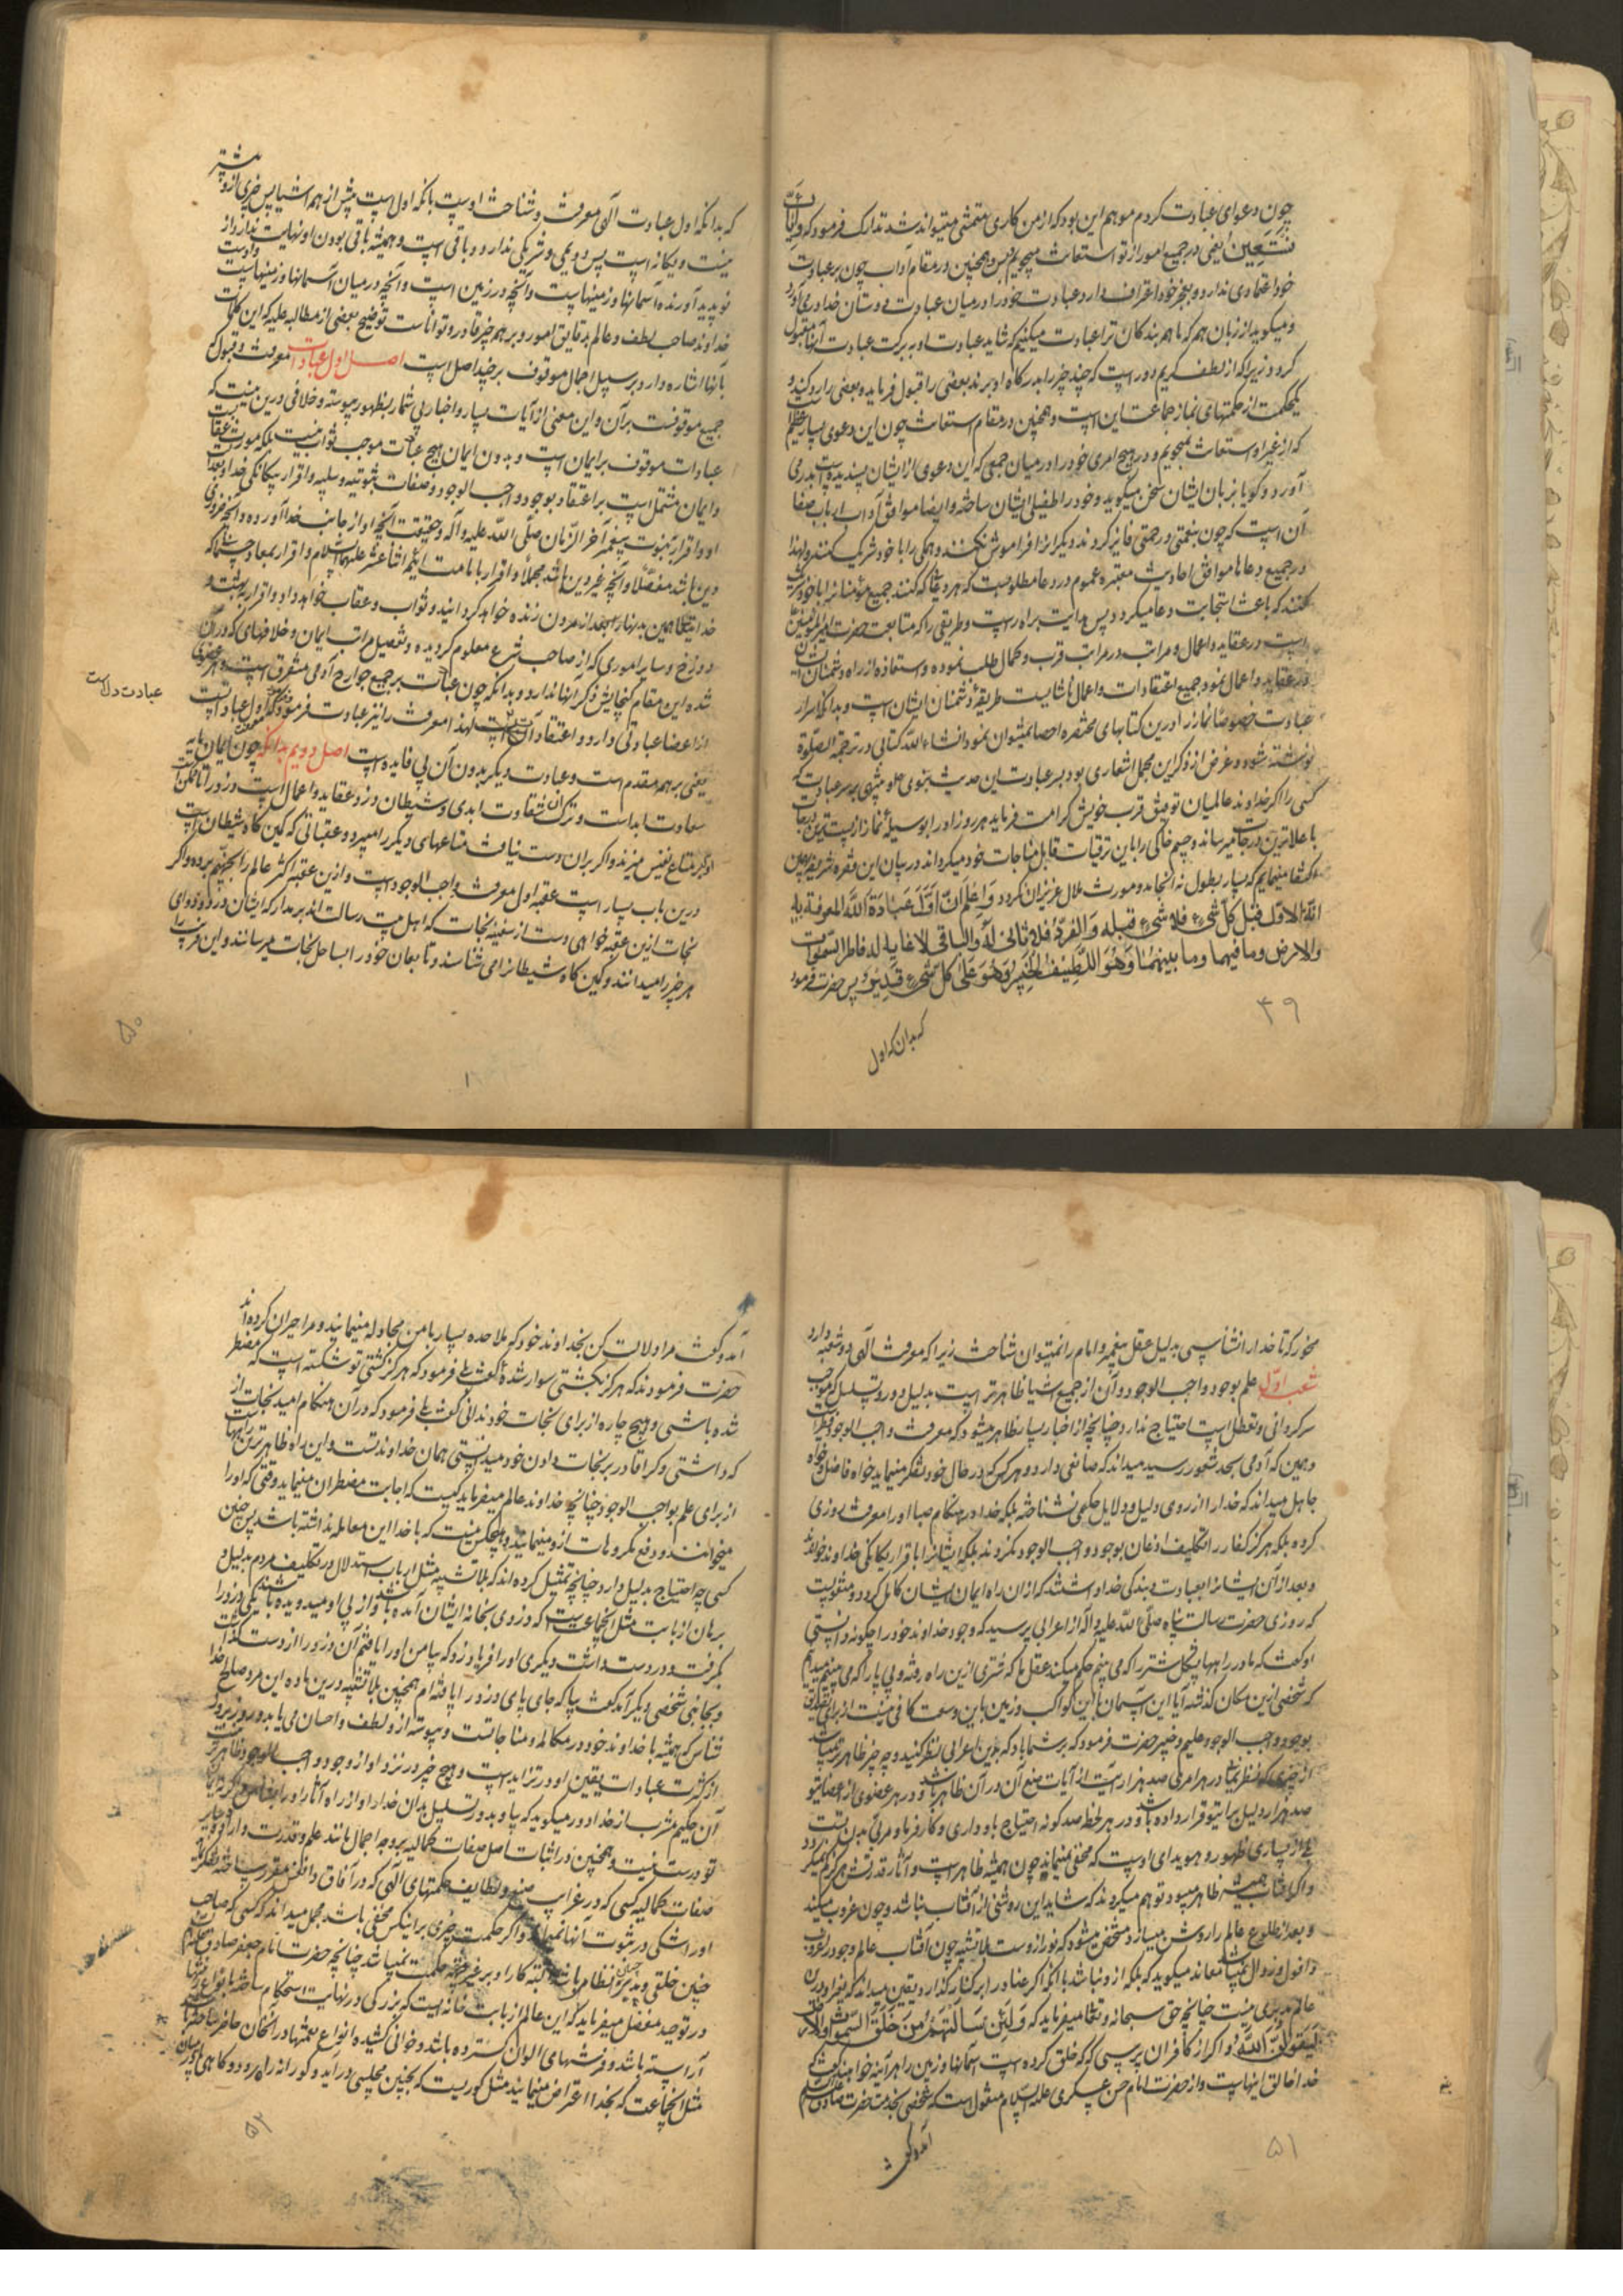 چون دعوای عبادت کردم موهم این بود که از من کاری متمشی میتواند شد تدارک فرمود که وَاِیّاکَ
نَسْتَعِین یعنی در جمیع امور از تو استعانت میجویم و بس و همچنین در مقام آداب چون بر عبادت
خود اعتمادی ندارد و بعجز خود اعتراف دارد عبادت خود را در میان عبادت دوستان خدا در می آورد
و میگوید از زبان همه که ما همه بندگان ترا عبادت میکنیم که شاید عبادت او به برکت عبادت آنها مقبول
گردد زیرا که از لطف کریم دور است که چند چیز را بدرگاه او برند بعضی را قبول فرماید و بعضی را رد کند و
یک حکمت از حکمتهای نماز جماعت این است و همچنین در مقام استعانت چون این دعوی بسیار عظیم است
که از غیر او استعانت نجویم و در هیچ امری خود را در میان جمعی که این دعوی از ایشان پسندیده است بدر می
آورد و گویا بزبان ایشان سخن میگوید و خود را طفیلی ایشان ساخته و ایضا موافق آداب ارباب صفا
آن است که چون بنعمتی و رحمتی فایز گردند دیگرانرا فراموش نکنند و همگی را با خود شریک کنند و لهذا
در جمیع دعاها موافق احادیث معتبره عموم در دعا مطلوبست که هر دعائی که کنند جمیع مؤمنانرا با خود شریک
کنند که باعث استجابت دعا میگردد پس هدایت براه راست و طریقی را که متابعت حضرت امیر المؤمنین
است در عقاید و اعمال و مراتب در مراتب قرب و کمال طلب نموده و استعاذه از راه دشمنان ایشان
در عقاید و اعمال نمود جمیع اعتقادات و اعمال ناشایست طریقهٔ دشمنان ایشان است و بدانکه اسرار
عبادت خصوصا نماز را درین کتابهای مختصره احصا نمیتوان نمود انشاء الله کتابی در ترجمة الصلوة
نوشته شود و غرض از ذکر این مجمل اشعاری بود بسر عبادت این حدیث نبوی صلوة مبنی بر سر عبادت که
کسی را که خداوند عالمیان توفیق قرب خویش کرامت فرماید هر روز او را بوسیلهٔ نماز از پست ترین درجات
با علاترین درجات میرساند و جسم خاکی را باین ترقیات قابل مناجات خود میگرداند در بیان این فقره شریفه بهمین
اکتفا مینمایم که بسیار بطول نه انجامد و مورث ملال عزیزان نگردد وَاعْلَم اَنَّ اَوَّلَ عِبادَةِ اللّه المَعرفةُ بِه
اِنّه الاَوّلُ قَبلَ کُلِّ شَیء فَلا شَیءَ قَبلَه وَالفَردُ فَلا ثانیَ لَهُ وَالباقی لا غایةَ لَه فاطِر السّموات
وَالاَرض وَما فیهِما وَما بَینَهُما وَهُوَ اللَّطِیفُ الخَبِیرُ وَهُوَ عَلی کُلِّ شَیء قَدِیرٌ پس حضرت فرمود
۴۹
که بدان که اول
که بدانکه اول عبادت الهی معرفت و شناخت اوست بآنکه اول است پیش از همه اشیا پس چیزی از و پیشتر
نیست و یگانه است پس دویمی و شریکی ندارد و باقی است و همیشه باقی بودن او نهایت ندارد از
نو پدید آورنده آسمانها و زمینهاست و آنچه در زمین است و آنچه در میان آسمانها و زمینهاست و اوست
خداوند صاحب لطف و عالم بدقایق امور و بر همه چیز قادر و تواناست توضیح بعضی از مطالب عالیه که این کلمات
بآنها اشاره دارد بر سبیل اجمال موقوف بر چند اصل است اصل اول عبادت معرفت و قبول
جمیع موقوفست بر آن و این معنی از آیات بسیار و اخبار بی شمار بظهور پیوسته و خلافی درین نیست که
عبادات موقوف بر ایمان است و بدون ایمان هیچ عبادت موجب ثواب نیست بلکه مورث عقاب است
و ایمان مشتمل است بر اعتقاد بوجود واجب الوجود و صفات ثبوتیه و سلبیه و اقرار بیگانگی خدا و بعدالت
او و اقرار بنبوت پیغمبر آخر الزمان صلی الله علیه و آله و حقیقت آنچه او از جانب خدا آورده و آنچه ضروری
دین باشد مفصّلا و آنچه غیر دین باشد مجملا و اقرار بامامت ائمّه اثنا عشر علیهم السلام و اقرار بمعاد جسمانی که
خدایتعالی همین بدنها را بعد از مردن زنده خواهد گردانید و ثواب و عقاب خواهد داد و اقرار ببهشت و
دوزخ و سایر اموری که از صاحب شرع معلوم گردیده و تفصیل مراتب ایمان و خلافهای که در آن
شده این مقام گنجایش ذکر آنها ندارد و بدانکه چون عبادت بر جمیع جوارح آدمی متفرق است و هر عضوی
از اعضا عبادتی دارد و اعتقاد آن عبادت دل است لهذا معرفت را نیز عبادت فرمود که اول عبادت است
عبادت دل است
یعنی بر همه مقدم است و عبادت دیگر بدون آن بی فایده است اصل دویم بدانکه چون ایمان مایه
سعادت ابدست و ترک آن شقاوت ابدی و شیطان دزد عقاید و اعمال است و دزد را تا ممکن است
او بر متاع نفیس میزند و اگر بر آن دست نیافت متاعهای دیگر را میبرد و عقباتی که کمین گاه شیطان است
درین باب بسیار است عقبه اول معرفت واجب الوجود است و ازین عقبه اکثر عالم را بجهنم برده و اگر
نجات ازین عقبه خواهی دست از سفینه نجات که اهل بیت رسالت اند بر مدار که ایشان درد و دوای
هر چیز را میدانند و کمین گاه شیطانرا می شناسند و تابعان خود را بساحل نجات میرسانند و این فریب را
۵۰
مخور که تا خدا را نشناسی بدلیل عقل پیغمبر و امام را نمیتوان شناخت زیرا که معرفت الهی دو شعبه دارد
شعبه اول علم بوجود واجب الوجود و آن از جمیع اشیا ظاهرتر است بدلیل دور و تسلسل که موجب
سرگردانی و تعطل است احتیاج ندارد چنانچه از اخبار بسیار ظاهر میشود که معرفت واجب الوجود فطریست
و همین که آدمی بحد شعور رسید میداند که صانعی دارد و هر کس که در حال خود تفکر مینماید خواه فاضل و خواه
جاهل میداند که خدا را از روی دلیل و دلایل حکمی نشناخته بلکه خدا در هنگام صبا او را معرفت روزی
کرده بلکه هرگز کفار را تکلیف اذعان بوجود واجب الوجود نکردند بلکه ایشانرا باقرار یگانگی خداوند خواندند
و بعد از آن ایشانرا بعبادت و بندگی خدا داشتند که از آن راه ایمان ایشان کامل گردد و منقولست
که روزی حضرت رسالت پناه صلی الله علیه و آله از اعرابی پرسید که وجود خداوند خود را چگونه دانستی
او گفت که ما در راهها پشکل شتر را که می بینیم حکم میکند عقل ما که شتری ازین راه رفته و پی پا را که می بینیم میدانیم
که شخصی ازین مکان گذشته آیا این آسمان باین کواکب و زمین باین وسعت کافی نیست از برای تصدیق
بوجود واجب الوجود علیم و خبیر حضرت فرمود که بر شما باد که بدین اعرابی نظر کنید و چه چیز ظاهرتر میباشد
صد هزار دلیل برای تو قرار داده باشد و در هر لحظه صد گونه احتیاج باو داری و کارفرما و مربی بدن تست
بلی از بسیاری ظهور و هویدای اوست که مخفی مینماید چون همیشه ظاهر است و آثار قدرتش هرگز کم نمیگردد
و اگر آفتاب همیشه ظاهر میبود توهم میکردند که شاید این روشنی از آفتاب نباشد و چون غروب میکند
و بعد از طلوع عالم را روشن میسازد مشخص میشود که نور از وست بلا تشبیه چون آفتاب عالم وجود را غروب
و افول و زوال نمیباشد معاند میگوید که بلکه از و نباشد با آنکه اگر عناد را بر کنار گذارد یقین میداند که بغیر او درین
عالم مدبری نیست چنانچه حق سبحانه و تعالی میفرماید که وَلَئِن سَاَلْتَهُمْ مَنْ خَلَقَ السَّمواتِ وَالاَرضَ
لَیَقُولُنَّ اللّهُ و اگر از کافران پرسی که که خلق کرده است آسمانها و زمین را هر آینه خواهند گفت که
خدا خالق اینهاست و از حضرت امام حسن عسکری علیه السلام منقول است که شخصی بخدمت حضرت صادق علیه السلام
۵۱
آمد و گفت
آمد و گفت مرا دلالت کن بخداوند خود که ملاحده بسیار با من مجادله مینمایند و مرا حیران کرده اند
حضرت فرمودند که هرگز بکشتی سوار شدهٔ گفت بلی فرمود که هرگز کشتی تو شکسته است که مضطر
شده باشی و هیچ چاره از برای نجات خود ندانی گفت بلی فرمود که در آن هنگام امید نجات از
که داشتی و کرا قادر بر نجات دادن خود میدانستی همان خداوند تست و این راه ظاهرترین راههاست
از برای علم بواجب الوجود چنانچه خداوند عالم میفرماید کیست که اجابت مضطران مینماید وقتی که او را
میخوانند و دفع مکروهات ازو مینماید و هیچکس نیست که با خدا این معامله نداشته باشد پس چنین
کسی چه احتیاج بدلیل دارد چنانچه تمثیل کرده اند که بلا تشبیه مثل ارباب استدلال و تکلیف مردم بدلیل و
برهان از بابت مثل آنجماعت است که دزدی بخانه ایشان آمده باشد و از پی او میدویده باشند یکی دزد را
گرفته و در دست داشت و دیگری او را فریاد زد که بیا من او را یافتم آن دزد را از دست گذاشت
و بجانبی شخصی دیگر آمد گفت بیا که جای پای دزد را یافته ام همچنین بلا تشبیه درین ماده این مرد صالح خدا
شناس که همیشه با خداوند خود در مکالمه و مناجاتست و پیوسته ازو لطف و احسان می یابد و روز بروز
از کثرت عبادات یقین او در تزاید است و هیچ چیز در نزد او از وجود واجب الوجود ظاهرتر نیست
تو درست نیست و همچنین در اثبات اصل صفات کمالیه بر وجه اجمال مانند علم و قدرت و اراده و سایر
صفات کمالیه کسی که در غرایب صنع و لطایف حکمتهای الهی که در آفاق و انفس مقرر ساخته تفکر نماید
او را شکی در ثبوت آنها نمیماند و اگر حکمت چیزی بر اینکس مخفی باشد مجمل میداند که کسی که صاحب
چنین خلقی و تدبیری چنین انتظامی باشد البته کار او بر غیر جهة حکمت نمیباشد چنانچه حضرت امام جعفر صادق علیه السلام
در توحید مفضل میفرماید که این عالم از بابت خانه ایست که بزرگی در نهایت استحکام ساخته بانواع زینتها
آراسته باشد و فرشهای الوان گسترده باشد و خوانی کشیده انواع نعمتها در آنخان حاضر ساخته باشد
مثل آنجماعت که بخدا اعتراض مینمایند مثل کوریست که بچنین مجلسی در آید و کورانه راه رود و گاهی پایش
۵۲